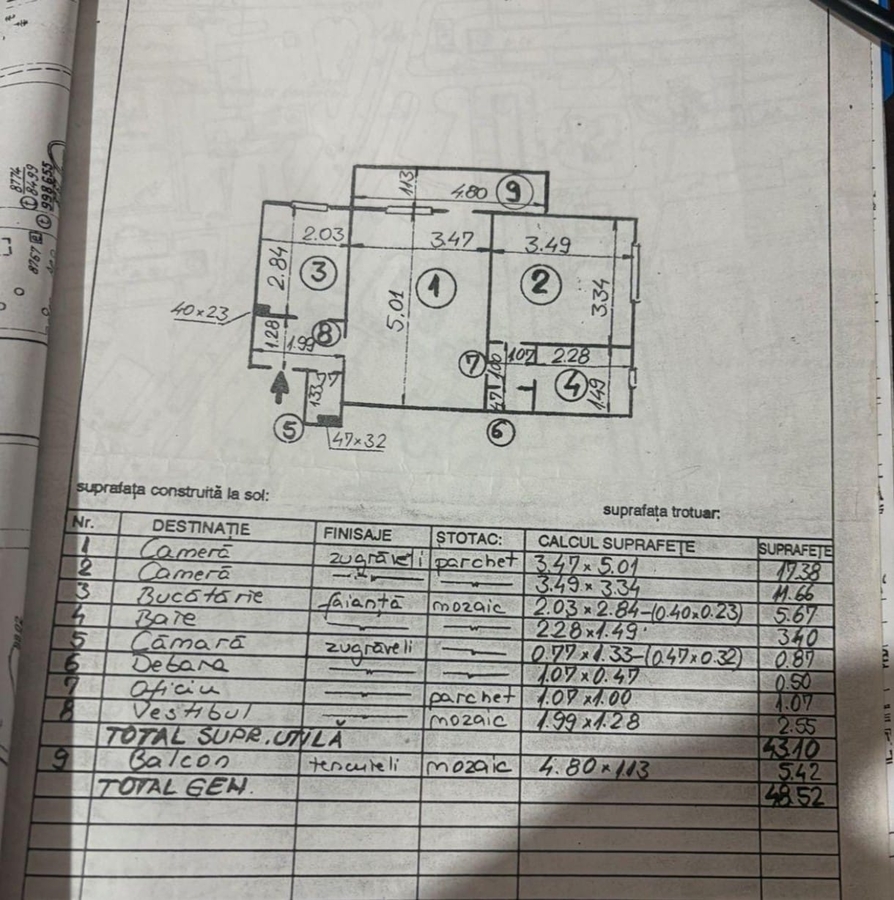 8774
① 8499
8767 ② ① 998655
1.13
4.80 ⑨
2.03
3.47
3.49
2.84
③
①
②
5.01
3.34
40×23
1.28
1.99
⑧
⑦
1.00
1.07
2.28
④
1.49
1.33
77
47
⑤
47×32
⑥
suprafaţa construită la sol:
suprafaţa trotuar:
Nr. DESTINAŢIE FINISAJE STOTAC: CALCUL SUPRAFEŢE SUPRAFEŢE
1 Cameră zugrăveli parchet 3.47×5.01 17.38
2 Cameră —"— —"— 3.49×3.34 11.66
3 Bucătărie faianţă mozaic 2.03×2.84-(0.40×0.23) 5.67
4 Baie —"— —"— 2.28×1.49 3.40
5 Cămară zugrăveli —"— 0.77×1.33-(0.47×0.32) 0.87
6 Debara —"— —"— 1.07×0.47 0.50
7 Oficiu —"— parchet 1.07×1.00 1.07
8 Vestibul —"— mozaic 1.99×1.28 2.55
TOTAL SUPR. UTILĂ 43.10
9 Balcon tencuieli mozaic 4.80×1.13 5.42
TOTAL GEN. 48.52